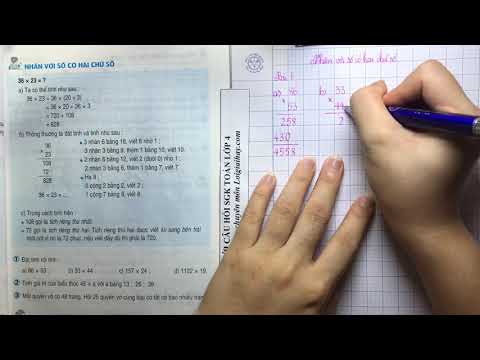 NHÂN VỚI SỐ CÓ HAI CHỮ SỐ
36 × 23 = ?
a) Ta có thể tính như sau :
36 × 23 = 36 × (20 + 3)
= 36 × 20 + 36 × 3
= 720 + 108
= 828
b) Thông thường ta đặt tính và tính như sau :
36
×
23
108
72
828
• 3 nhân 6 bằng 18, viết 8 nhớ 1 ;
3 nhân 3 bằng 9, thêm 1 bằng 10, viết 10.
• 2 nhân 6 bằng 12, viết 2 (dưới 0) nhớ 1 ;
2 nhân 3 bằng 6, thêm 1 bằng 7, viết 7.
• Hạ 8 ;
0 cộng 2 bằng 2, viết 2 ;
1 cộng 7 bằng 8, viết 8
36 × 23 =
c) Trong cách tính trên :
• 108 gọi là tích riêng thứ nhất.
• 72 gọi là tích riêng thứ hai. Tích riêng thứ hai được viết lùi sang bên trái
một cột vì nó là 72 chục, nếu viết đầy đủ thì phải là 720.
1 Đặt tính rồi tính :
a) 86 × 53 ; b) 33 × 44 ; c) 157 × 24 ; d) 1122 × 19.
2 Tính giá trị của biểu thức 45 × a với a bằng 13 ; 26 ; 39.
3 Mỗi quyển vở có 48 trang. Hỏi 25 quyển vở cùng loại có tất cả bao nhiêu trang
CÂU HỎI SGK TOÁN LỚP 4
chuyên môn Loigiaihay.com
Nhân với số có hai chữ số
Bài 1
a) 86
×
53
258
430
4558
b) 33
×
44
2